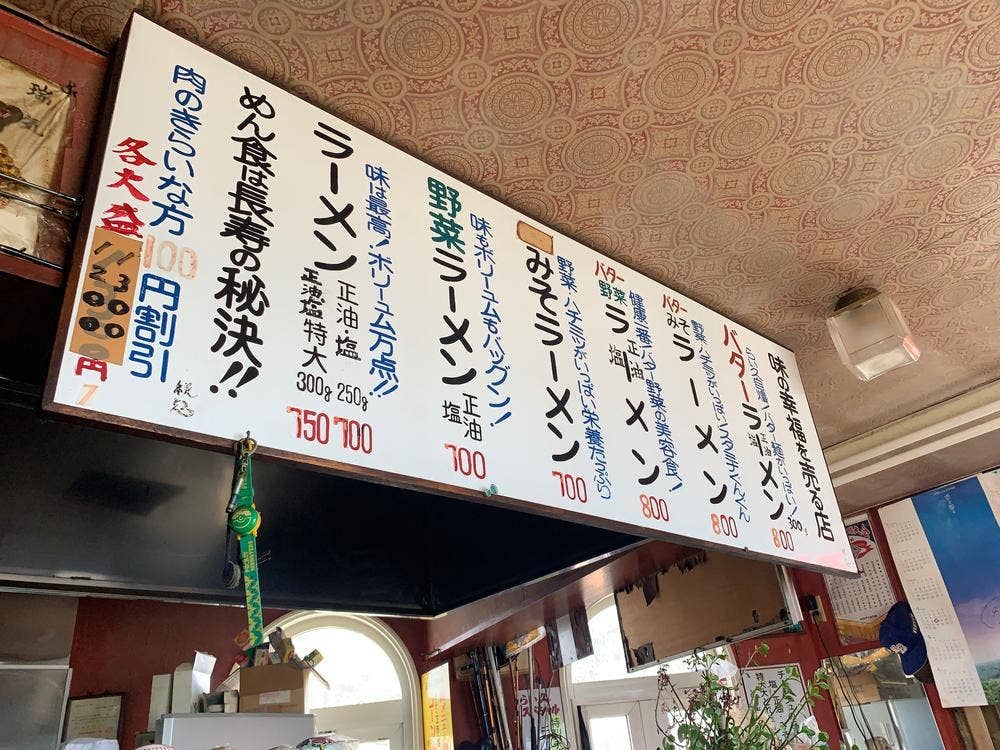 味の幸福を売る店
バターラーメン
正油
塩
300g
800
バター
みそラーメン
800
健康一番!バター野菜の美容食!
バター
野菜ラーメン
正油
塩
800
野菜、ハチミツがいっぱい栄養たっぷり
みそラーメン
700
味もボリュームもバツグン!
野菜ラーメン
正油
塩
700
味は最高!ボリューム万点!!
ラーメン
正油・塩
250g
700
正油塩特大
300g
750
めん食は長寿の秘決!!
肉のきらいな方100円割引
各大盛
円